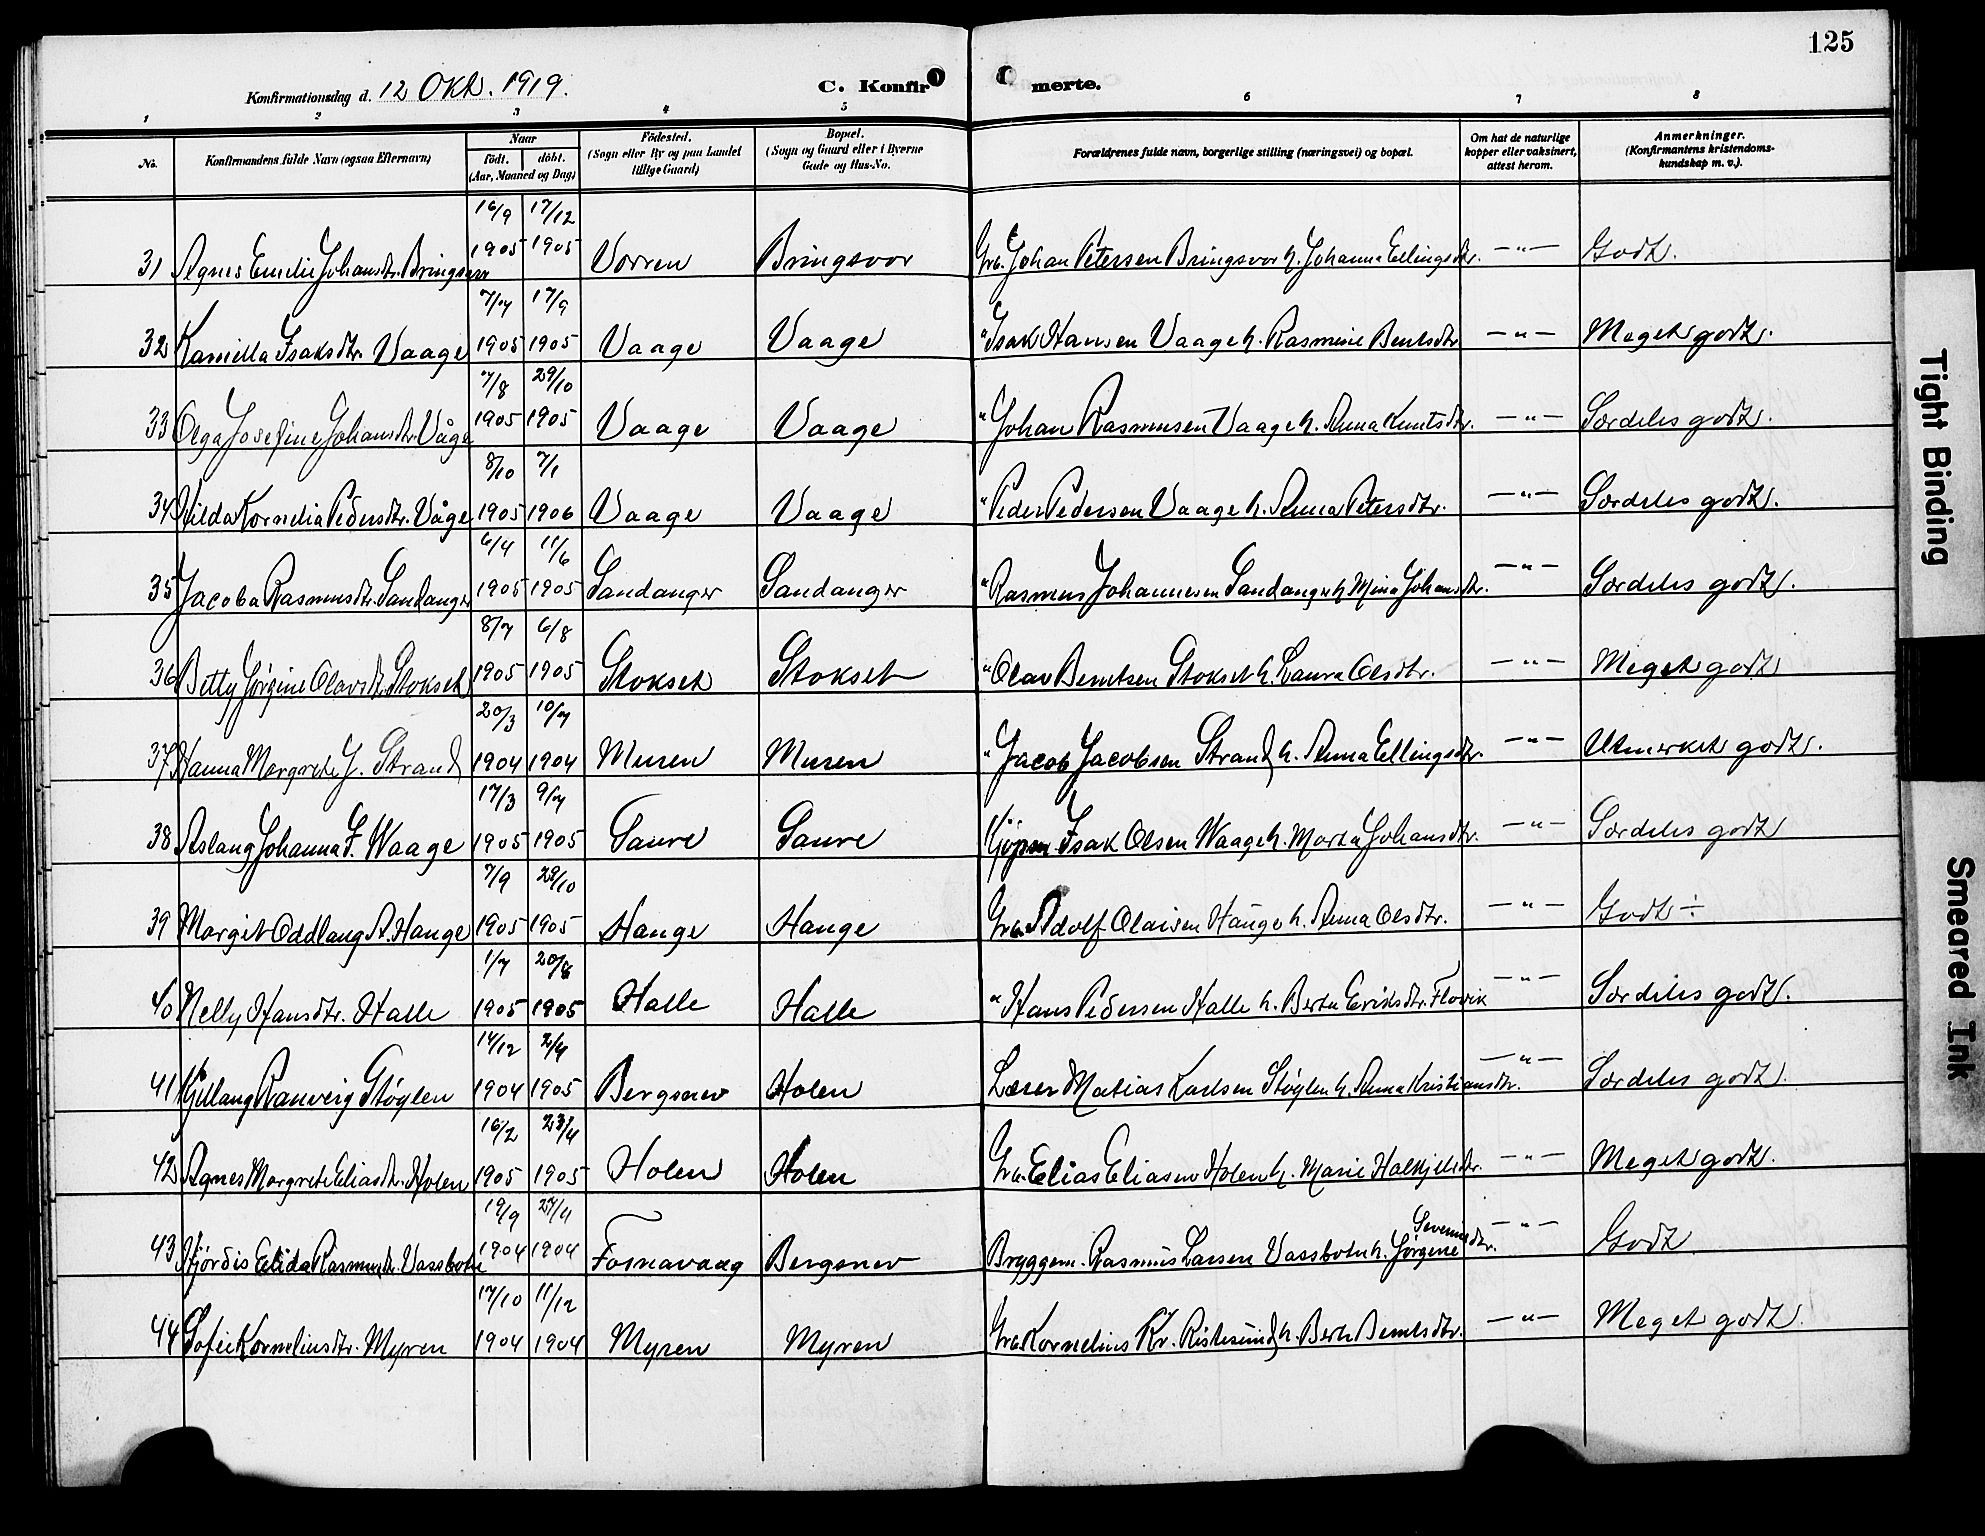 125
Konfirmationsdag d. 12 Okt. 1919.
C. Konfir merte.
1 2 3 4 5 6 7 8
No.
Konfirmandens fulde Navn (ogsaa Efternavn)
Naar
født. døbt.
(Aar, Maaned og Dag)
Fødested.
(Sogn eller By og paa Landet
tillige Gaard)
Bopæl.
(Sogn og Gaard eller i Byerne
Gade og Hus-No.
Forældrenes fulde navn, borgerlige stilling (næringsvei) og bopæl.
Om hat de naturlige
kopper eller vaksinert,
attest herom.
Anmerkninger.
(Konfirmantens kristendoms-
kundskap m. v.).
16/9 17/12
31 Agnes Emelie Johansdtr. Bringsvor 1905 1905 Vorren Bringsvor Grb. Johan Petersen Bringsvor h. Johanna Ellingsdtr. —"— Godt.
7/7 17/9
32 Kamilla Isaksdtr. Vaage 1905 1905 Vaage Vaage " Isak Hansen Vaage h. Rasmine Bentsdtr —"— Meget godt.
7/8 29/10
33 Olga Josefine Johansdtr. Våge 1905 1905 Vaage Vaage " Johan Rasmussen Vaage h. Anna Knutsdtr. —"— Særdeles godt.
8/10 7/1
34 Hilda Kornelia Pedersdtr. Våge 1905 1906 Vaage Vaage " Peder Pedersen Vaage h. Anna Petersdtr. —"— Særdeles godt.
6/4 11/6
35 Jacoba Rasmusdtr. Sandanger 1905 1905 Sandanger Sandanger " Rasmus Johannesen Sandanger h Mina Johansdtr. —"— Særdeles godt.
8/7 6/8
36 Betty Jørgine Olavsdt. Stokset 1905 1905 Stokset Stokset " Olav Berntsen Stokset h. Laura Olsdtr. —"— Meget godt
20/3 10/7
37 Hanna Margrete J. Strand 1904 1904 Muren Muren " Jacob Jacobsen Strand h. Anna Ellingsdtr. —"— Utmerket godt.
17/3 9/7
38 Aslaug Johanna I. Waage 1905 1905 Saure Saure Isak Olsen Waage h. Marta Johansdtr. —"— Særdeles godt
7/9 29/10
39 Margit Oddlaug A. Hauge 1905 1905 Hauge Hauge Grb. Adolf Olaisen Hauge h. Anna Olsdtr. —"— Godt ÷
1/7 20/8
40 Nelly Hansdtr. Halle 1905 1905 Halle Halle " Hans Pedersen Halle h. Berta Eriksdtr. Flovik —"— Særdeles godt.
14/12 2/4
41 Gullaug Ranveig Støylen 1904 1905 Bergsnev Holen Lærer Matias Karlsen Støylen h. Anna Kristiansdtr. —"— Særdeles godt.
16/2 23/4
42 Agnes Margrete Eliasdtr. Holen 1905 1905 Holen Holen Grb. Elias Eliassen Holen h. Marie Halkjelsdtr. —"— Meget godt.
19/9 27/11
43 Hjørdis Elida Rasmusdtr. Vassbotn 1904 1904 Fosnavaag Bergsnev Bryggem. Rasmus Larsen Vassbotn h. Jørgine Severinsdtr. —"— Godt
17/10 11/12
44 Sofie Korneliusdtr. Myren 1904 1904 Myren Myren Grb. Kornelius Kr. Ristesund h. Berte Berntsdtr. —"— Meget godt.
Tight Binding
Smeared Ink